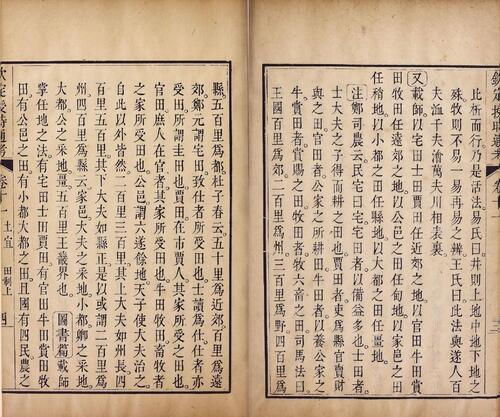 欽定授時通考
此析而行乃是活法易氏曰井則上地中地下地之
殊牧則不易一易再易之辨王氏曰此法與遂人百
夫洫千夫澮萬夫川相表裏
又載師以宅田士田賈田任近郊之地以官田牛田賞
田牧田任遠郊之地以公邑之田任甸地以家邑之田
任稍地以小都之田任縣地以大都之田任畺地
注鄭司農云民宅曰宅宅田者以備益多也士田者
士大夫之子得而耕之田也賈田者吏爲縣官賣財
與之田官田者公家之所耕田牛田者以養公家之
牛賞田者賞賜之田牧田者牧六畜之田司馬法曰
王國百里爲郊二百里爲州三百里爲野四百里爲
縣五百里爲都杜子春云五十里爲近郊百里爲遠
郊鄭元謂宅田致仕者所受田也士讀爲仕仕者亦
受田所謂圭田也賈田在市賈人其家所受之田也
官田庶人在官者其家所受田也牛田牧田畜牧者
之家所受田也公邑謂六遂餘地天子使大夫治之
自此以外皆然二百里三百里其上大夫如州長四
百里五百里其下大夫如縣正是以或謂二百里爲
州四百里爲縣云家邑大夫之采地小都卿之采地
大都公之采地畺五百里王畿界也 圖書編載師
掌任地之法有宅田士田賈田有官田牛田賞田牧
田有公邑之田有小都大都之田且國有四民農之
欽定授時通考 卷十一 土宜 田制上 四